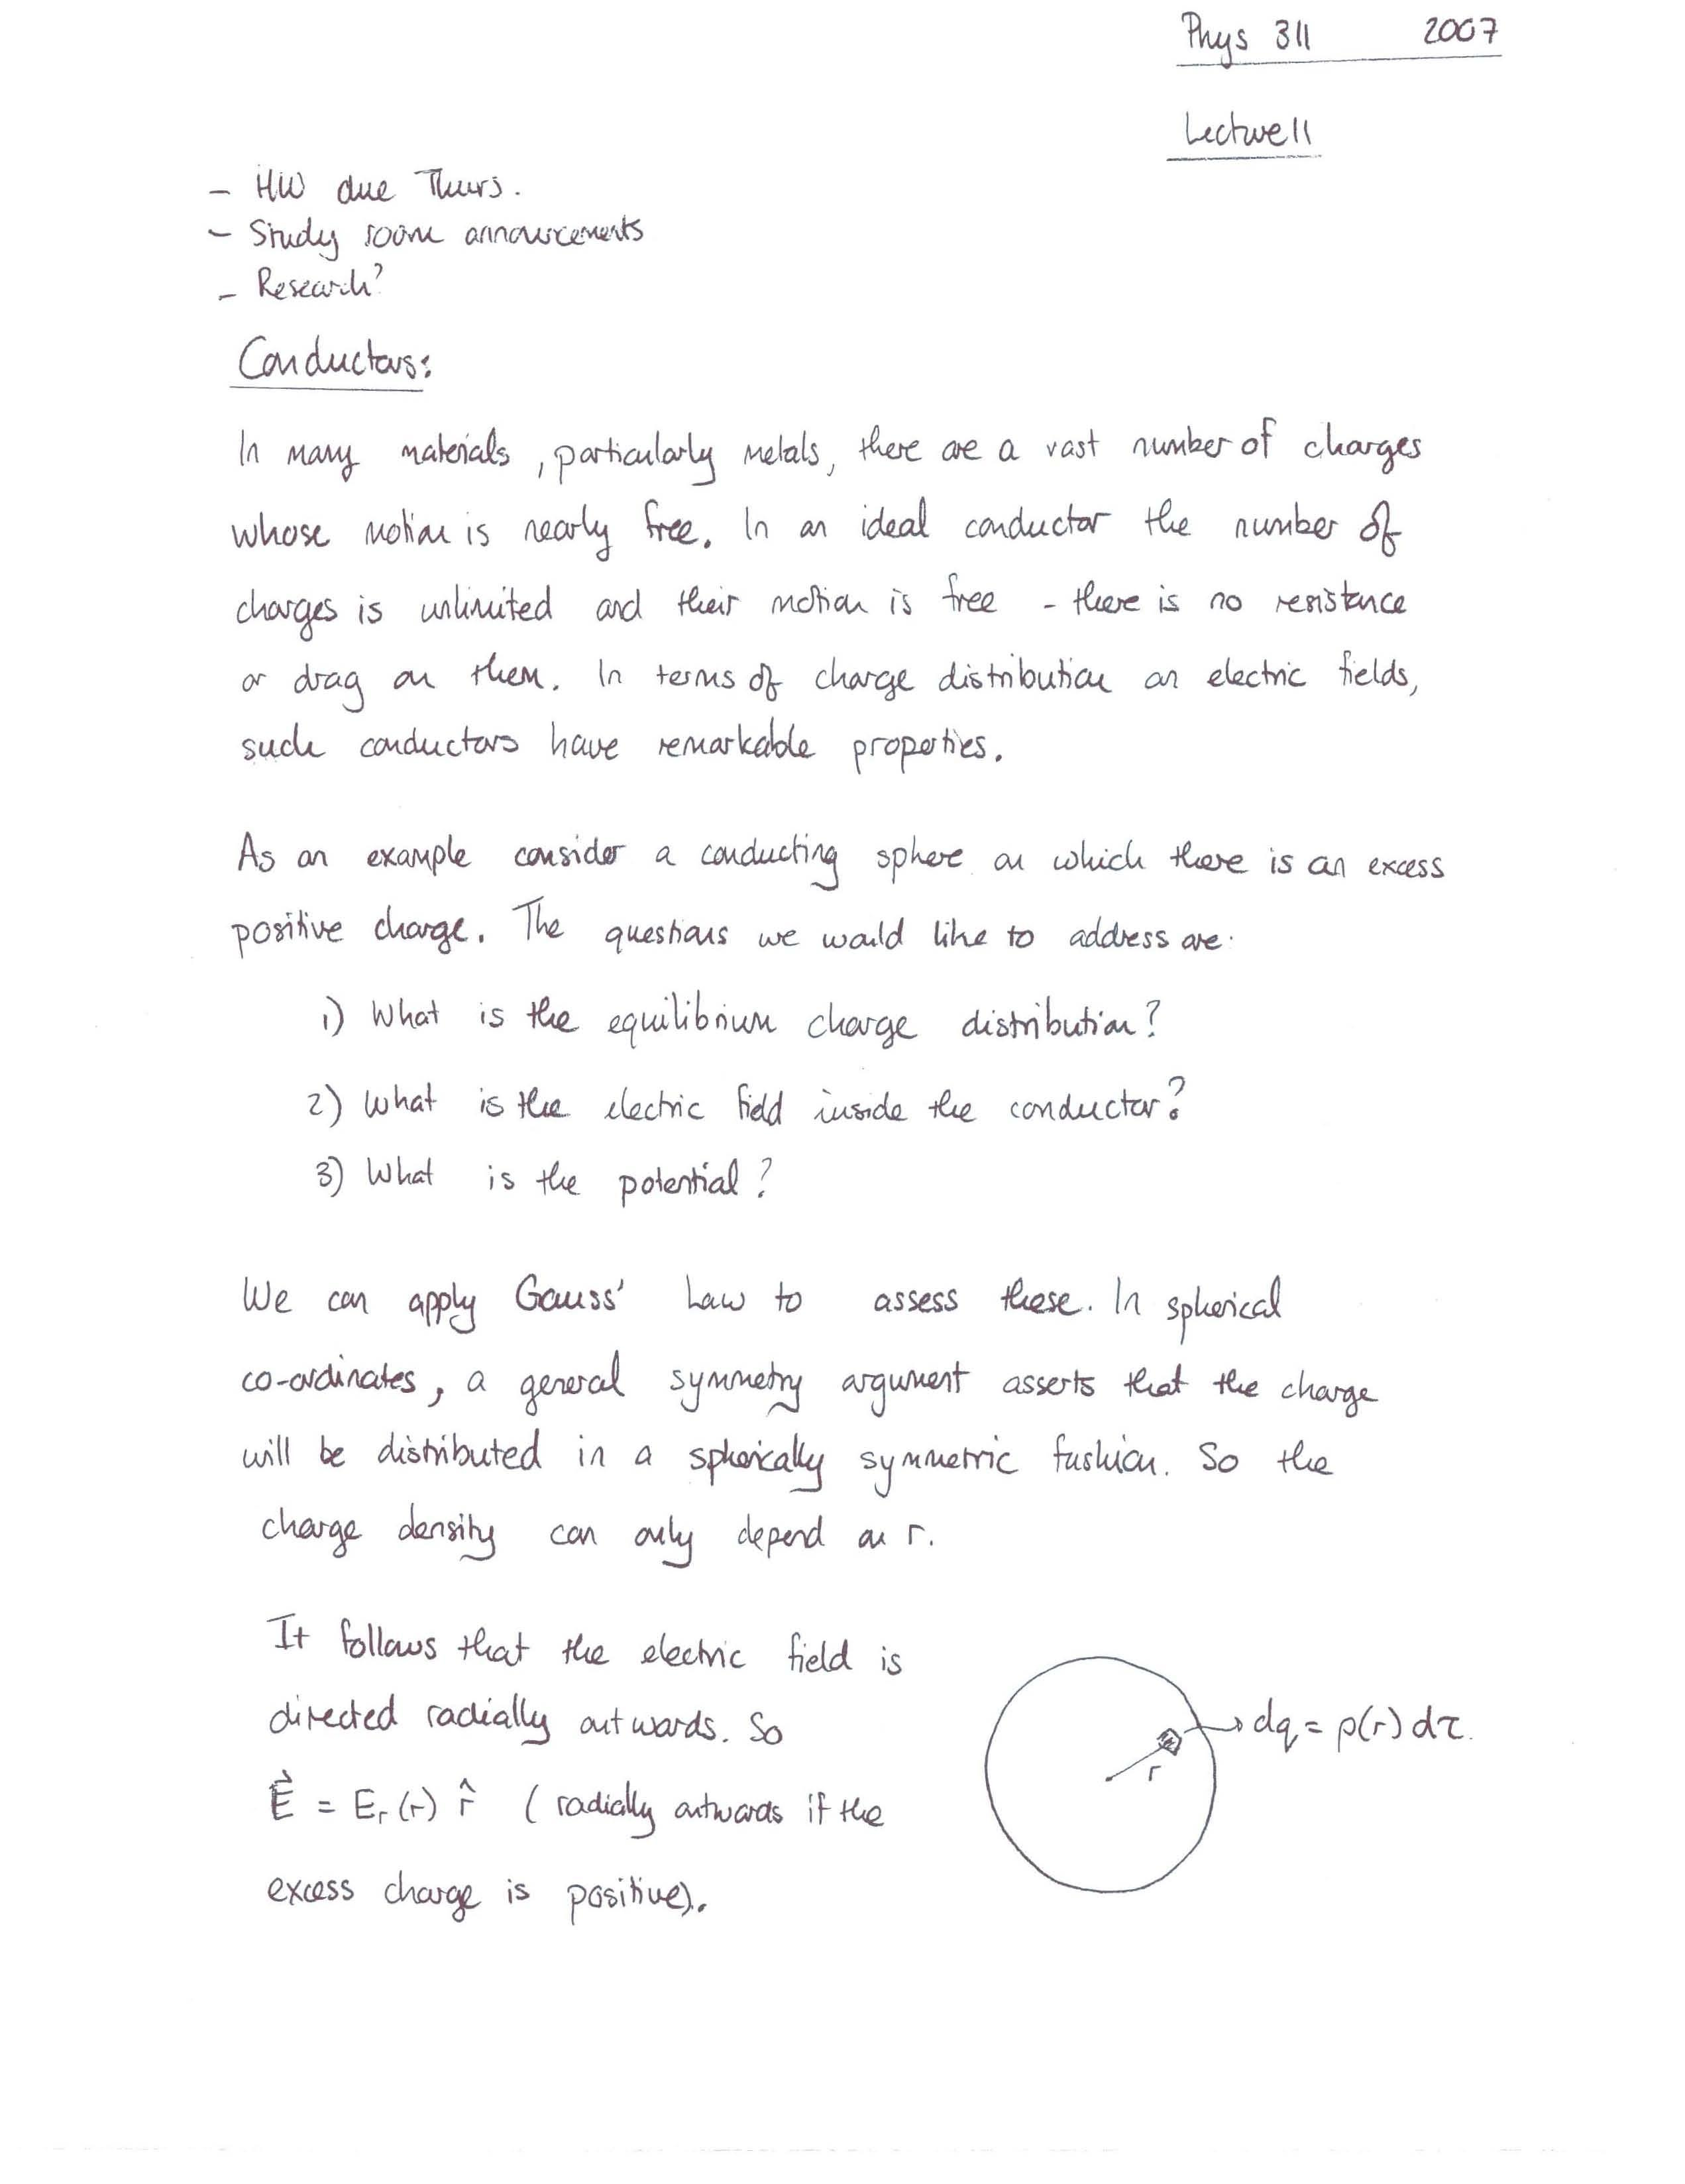 Phys 311 2007
Lecture 11
- HW due Thurs.
- Study room announcements
- Research?
Conductors:
In many materials, particularly metals, there are a vast number of charges
whose motion is nearly free. In an ideal conductor the number of
charges is unlimited and their motion is free - there is no resistance
or drag on them. In terms of charge distribution an electric fields,
such conductors have remarkable properties.
As an example consider a conducting sphere on which there is an excess
positive charge. The questions we would like to address are:
1) What is the equilibrium charge distribution?
2) What is the electric field inside the conductor?
3) What is the potential?
We can apply Gauss' Law to assess these. In spherical
co-ordinates, a general symmetry argument asserts that the charge
will be distributed in a spherically symmetric fashion. So the
charge density can only depend on r.
It follows that the electric field is
directed radially outwards. So
E⃗ = Eᵣ(r) r̂ (radially outwards if the
excess charge is positive).
dq = ρ(r) dτ.
r